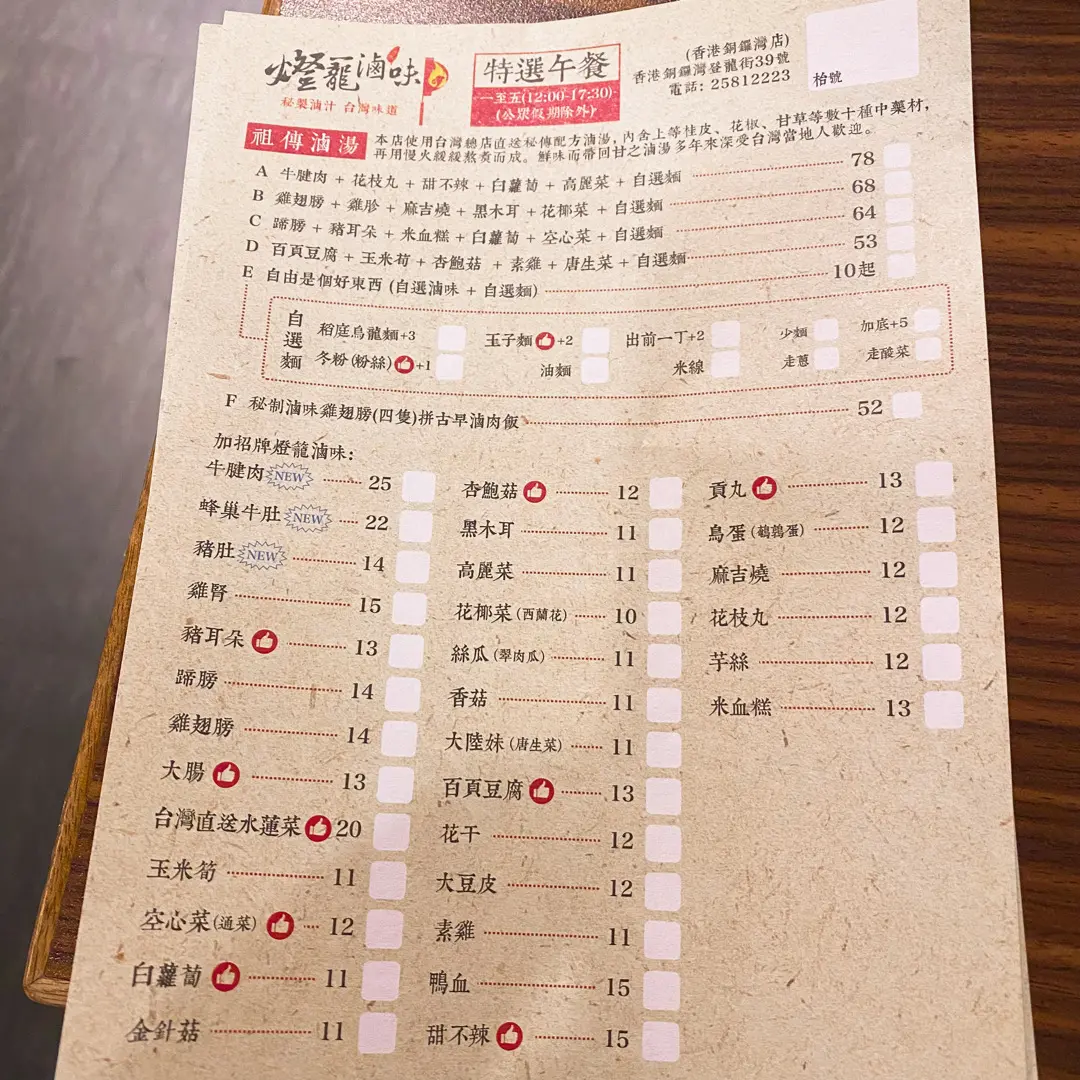 燈龍滷味
秘製滷汁 台灣味道
特選午餐
一至五(12:00-17:30)
(公眾假期除外)
(香港銅鑼灣店)
香港銅鑼灣登龍街39號
電話: 25812223
枱號
祖傳滷湯
本店使用台灣總店直送秘傳配方滷湯,內含上等桂皮、花椒、甘草等數十種中藥材,
再用慢火緩緩熬煮而成。鮮味而帶回甘之滷湯多年來深受台灣當地人歡迎。
A 牛腱肉 + 花枝丸 + 甜不辣 + 白蘿蔔 + 高麗菜 + 自選麵 78
B 雞翅膀 + 雞胗 + 麻吉燒 + 黑木耳 + 花椰菜 + 自選麵 68
C 蹄膀 + 豬耳朵 + 米血糕 + 白蘿蔔 + 空心菜 + 自選麵 64
D 百頁豆腐 + 玉米筍 + 杏鮑菇 + 素雞 + 唐生菜 + 自選麵 53
E 自由是個好東西 (自選滷味 + 自選麵) 10起
自選麵
稻庭烏龍麵+3 玉子麵+2 出前一丁+2 少麵 加底+5
冬粉(粉絲)+1 油麵 米線 走蔥 走酸菜
F 秘制滷味雞翅膀(四隻)拼古早滷肉飯 52
加招牌燈龍滷味:
牛腱肉 NEW 25
蜂巢牛肚 NEW 22
豬肚 NEW 14
雞腎 15
豬耳朵 13
蹄膀 14
雞翅膀 14
大腸 13
台灣直送水蓮菜 20
玉米筍 11
空心菜(通菜) 12
白蘿蔔 11
金針菇 11
杏鮑菇 12
黑木耳 11
高麗菜 11
花椰菜(西蘭花) 10
絲瓜(翠肉瓜) 11
香菇 11
大陸妹(唐生菜) 11
百頁豆腐 13
花干 12
大豆皮 12
素雞 11
鴨血 15
甜不辣 15
貢丸 13
鳥蛋(鵪鶉蛋) 12
麻吉燒 12
花枝丸 12
芋絲 12
米血糕 13